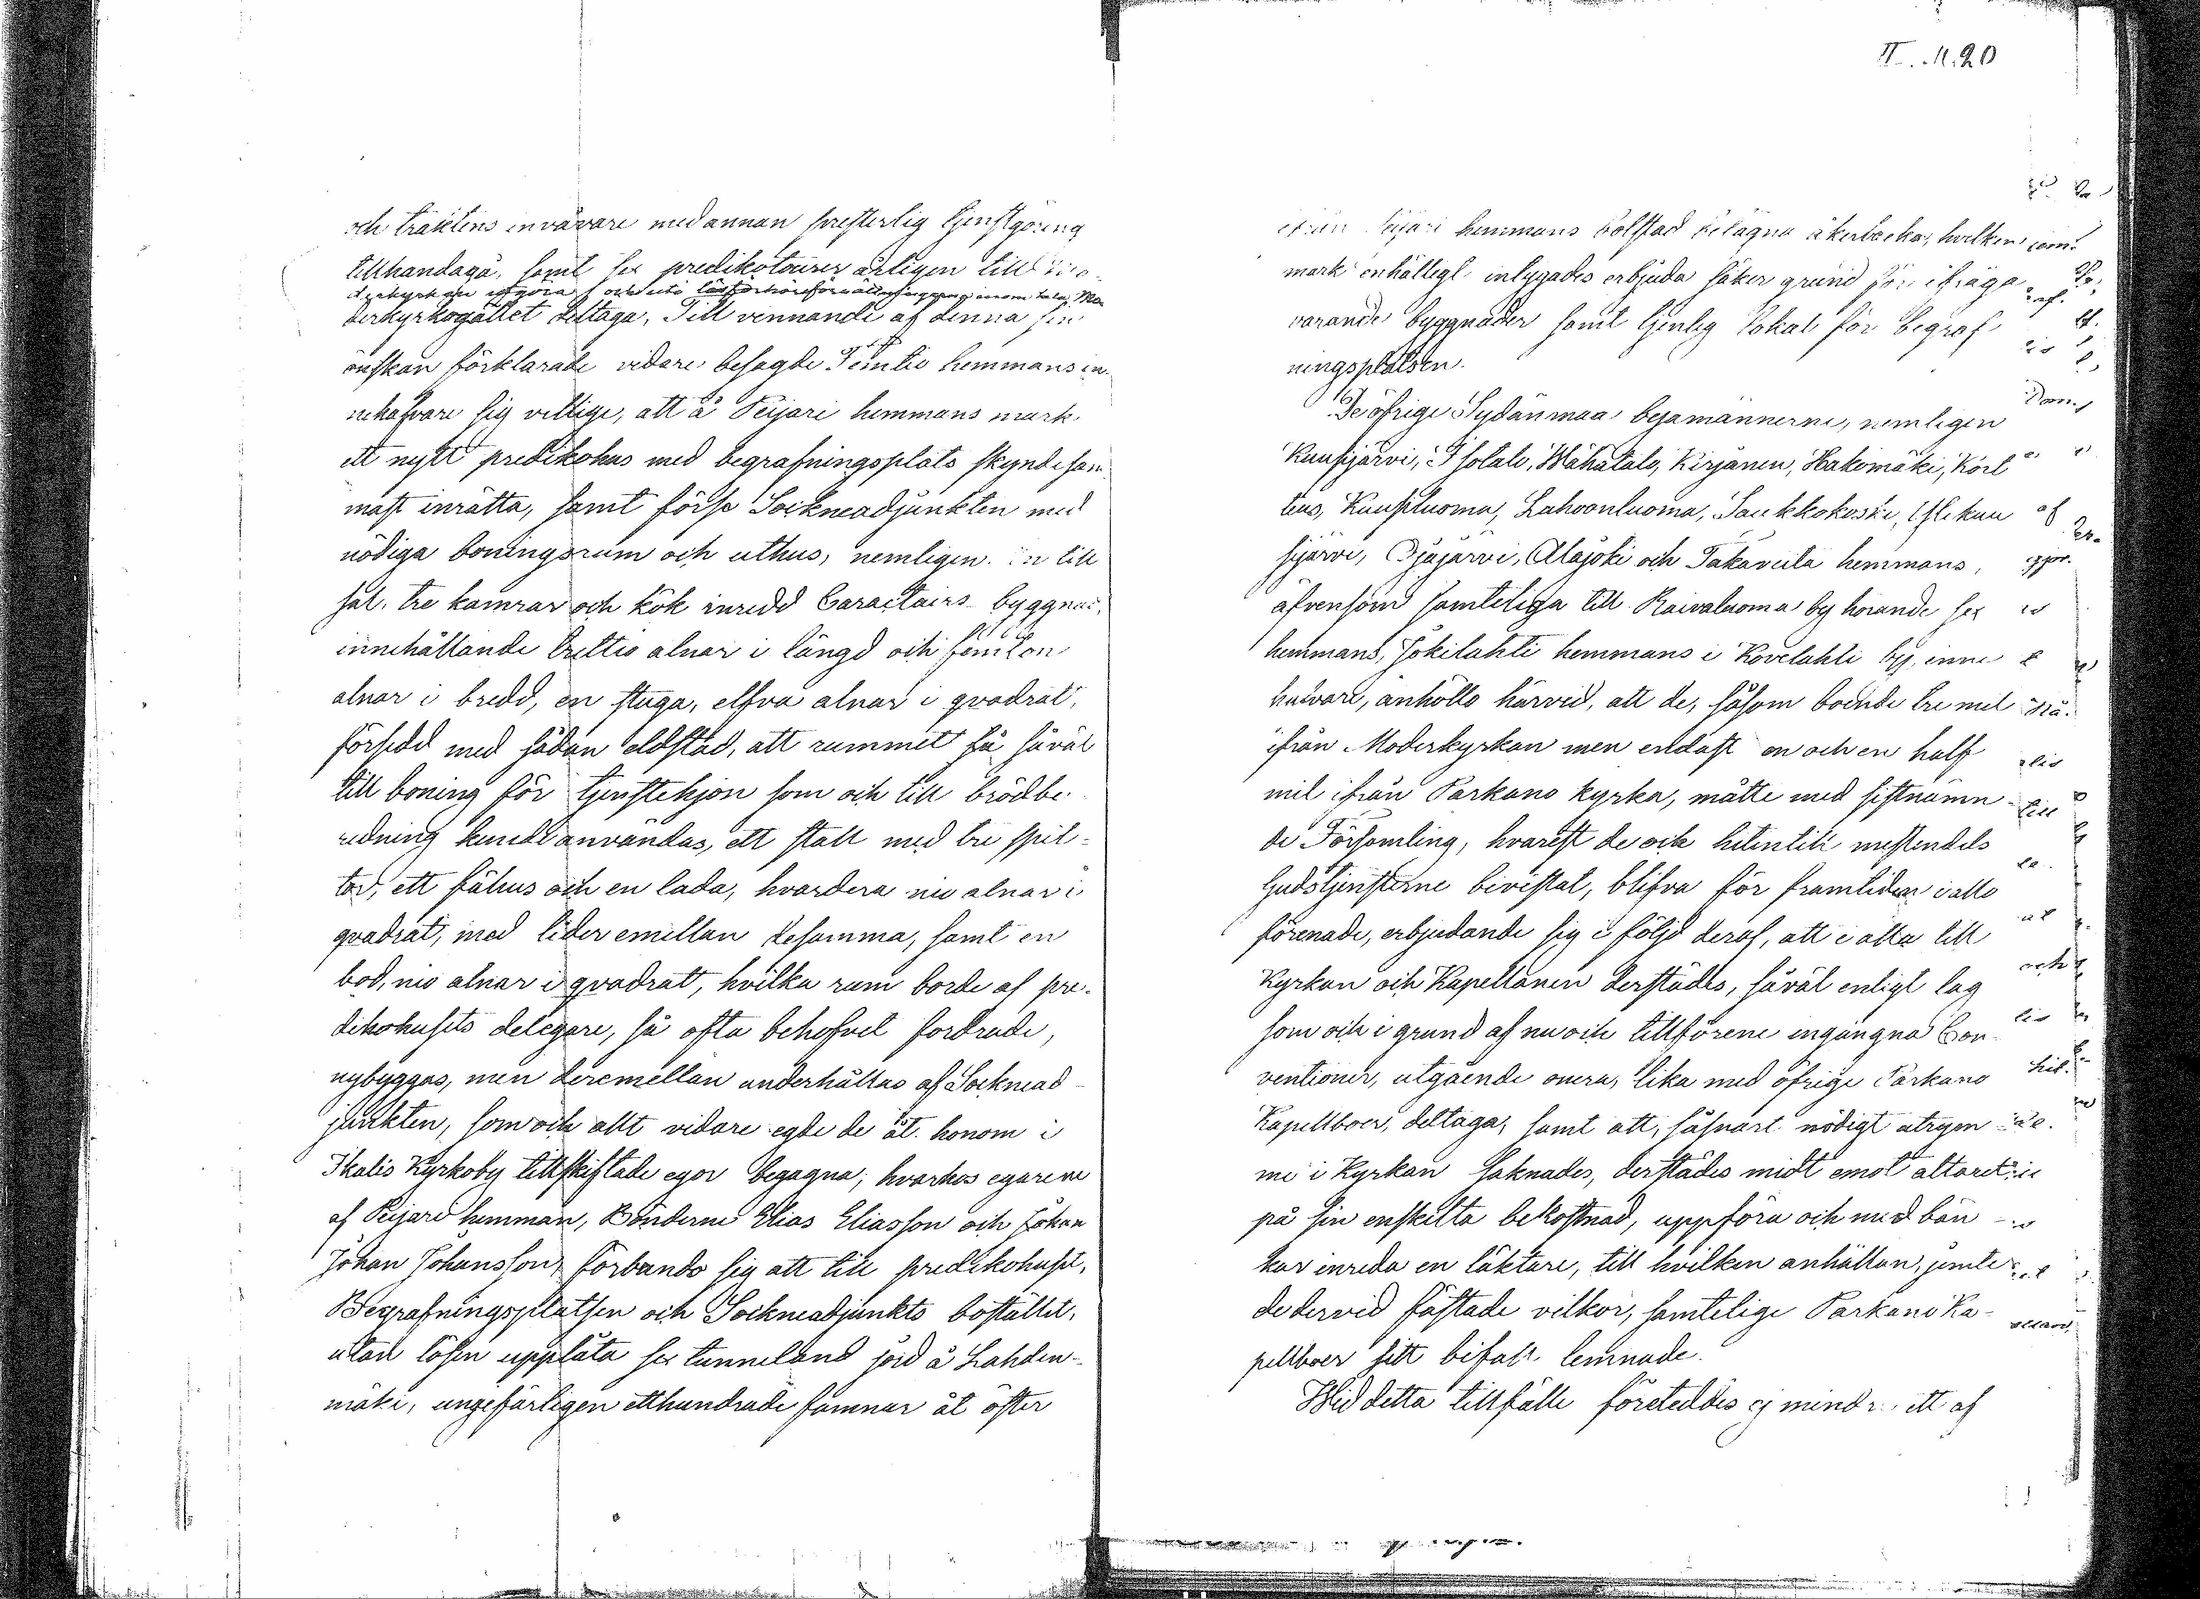 II. M. 20
och traktens invånare med annan presterlig tjenstgöring
tillhandagå, samt sex predikotourer årligen till Mo-
derkyrkan göra och uti läseförhörsförrättningarna inom hela Mo
derkyrkogället deltaga. Till vinnande af denna sin
önskan förklarade vidare besagde Femtio hemmans in-
nehafvare sig villige, att å Peijari hemmans mark
ett nytt predikohus med begrafningsplats skyndesam
mast inrätta, samt förse Sockneadjunkten med
nödiga boningsrum och uthus, nemligen: en till
sal, tre kamrar och kök inredd Caractairs byggnad,
innehållande trettio alnar i längd och femton
alnar i bredd, en stuga, elfva alnar i qvadrat,
försedd med sådan eldstad, att rummet få såväl
till boning för tjenstehjon som och till brödbe-
redning kunde användas, ett stall med tre spil-
tor, ett fähus och en lada, hvardera nio alnar i
qvadrat, med lider emellan desamma, samt en
bod, nio alnar i qvadrat, hvilka rum borde af pre-
dikohusets delegare, så ofta behofvet fordrade,
nybyggas, men deremellan underhållas af Socknead-
junkten, som och allt vidare egde de åt honom i
Ikalis Kyrkoby tillskiftade egor begagna; hvarhos egarene
af Peijari hemman, Bönderne Elias Eliasson och Johan
Johan Johansson, förbundo sig att till predikohuset,
Begrafningsplatsen och Sockneadjunkts bostället,
utan lösen upplåta sex tunneland jord å Lahden-
mäki, ungefärligen etthundrade famnar åt öster
ifrån Peijari hemmans bolstad belägna åkerbacka, hvilken som
mark enhälligt intygades erbjuda säker grund för ifråga
varande byggnader samt tjenlig lokal för begraf
ningsplatsen.
De öfrige Sydänmaa byamännerne, nemligen
Kuusijärvi, Isotalo, Wähätalo, Kirjanen, Hakomäki, Kort
teus, Kuusiluoma, Lahoonluoma, Saukkokoski, Ylikuu
sijärvi, Ojajärvi, Alajoki och Takaveila hemmans,
äfvensom samteliga till Raivaluoma by hörande sex
hemmans, Jokilahti hemmans i Kovelahti by, inne
hafvare, anhöllo härvid, att de, såsom boende tre mil
ifrån Moderkyrkan men endast en och en half
mil ifrån Parkano kyrka, måtte med sistnämn-
de Församling, hvarest de och hitintill mestendels
Gudstjensterne bivistat, blifva för framtiden i allo
förenade, erbjudande sig i följd deraf, att i alla till
Kyrkan och Kapellanen derstädes, såväl enligt lag
som och i grund af nu och tillförene ingångna Con-
ventioner, utgående onera, lika med öfrige Parkano
Kapellboer, deltaga, samt att, såsnart nödigt utrym-
me i Kyrkan saknades, derstädes midt emot altaret
på sin enskilta bekostnad, uppföra och med bän-
kar inreda en läktare, till hvilken anhållan, jemte
de dervid fästade vilkor, samtelige Parkano Ka-
pellboer sitt bifall lemnade.
Wid detta tillfälle företeddes ej mindre ett af